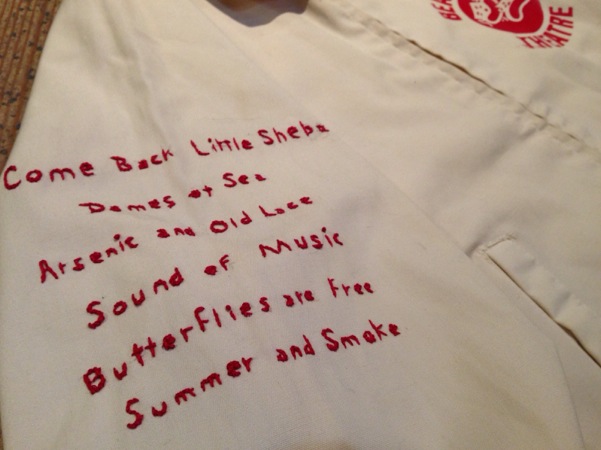 Come Back Little Sheba
Dames at Sea
Arsenic and Old Lace
Sound of Music
Butterflies are Free
Summer and Smoke
THEATRE